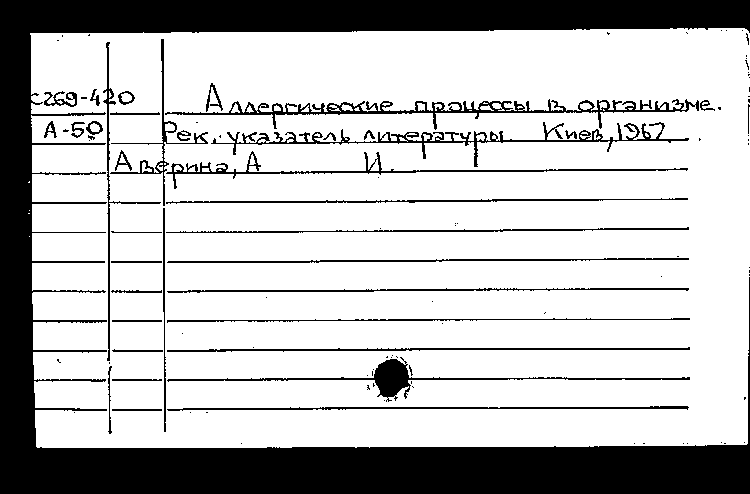 С269-420 Аллергические процессы в организме.
А-50 Рек. указатель литературы Киев, 1967.
Аверина, А И.